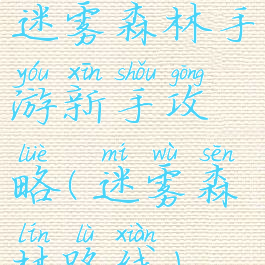 迷雾森林手
yóu xīn shǒu gōng
游新手攻
lüè mí wù sēn
略(迷雾森
lín lù xiàn
林路线)